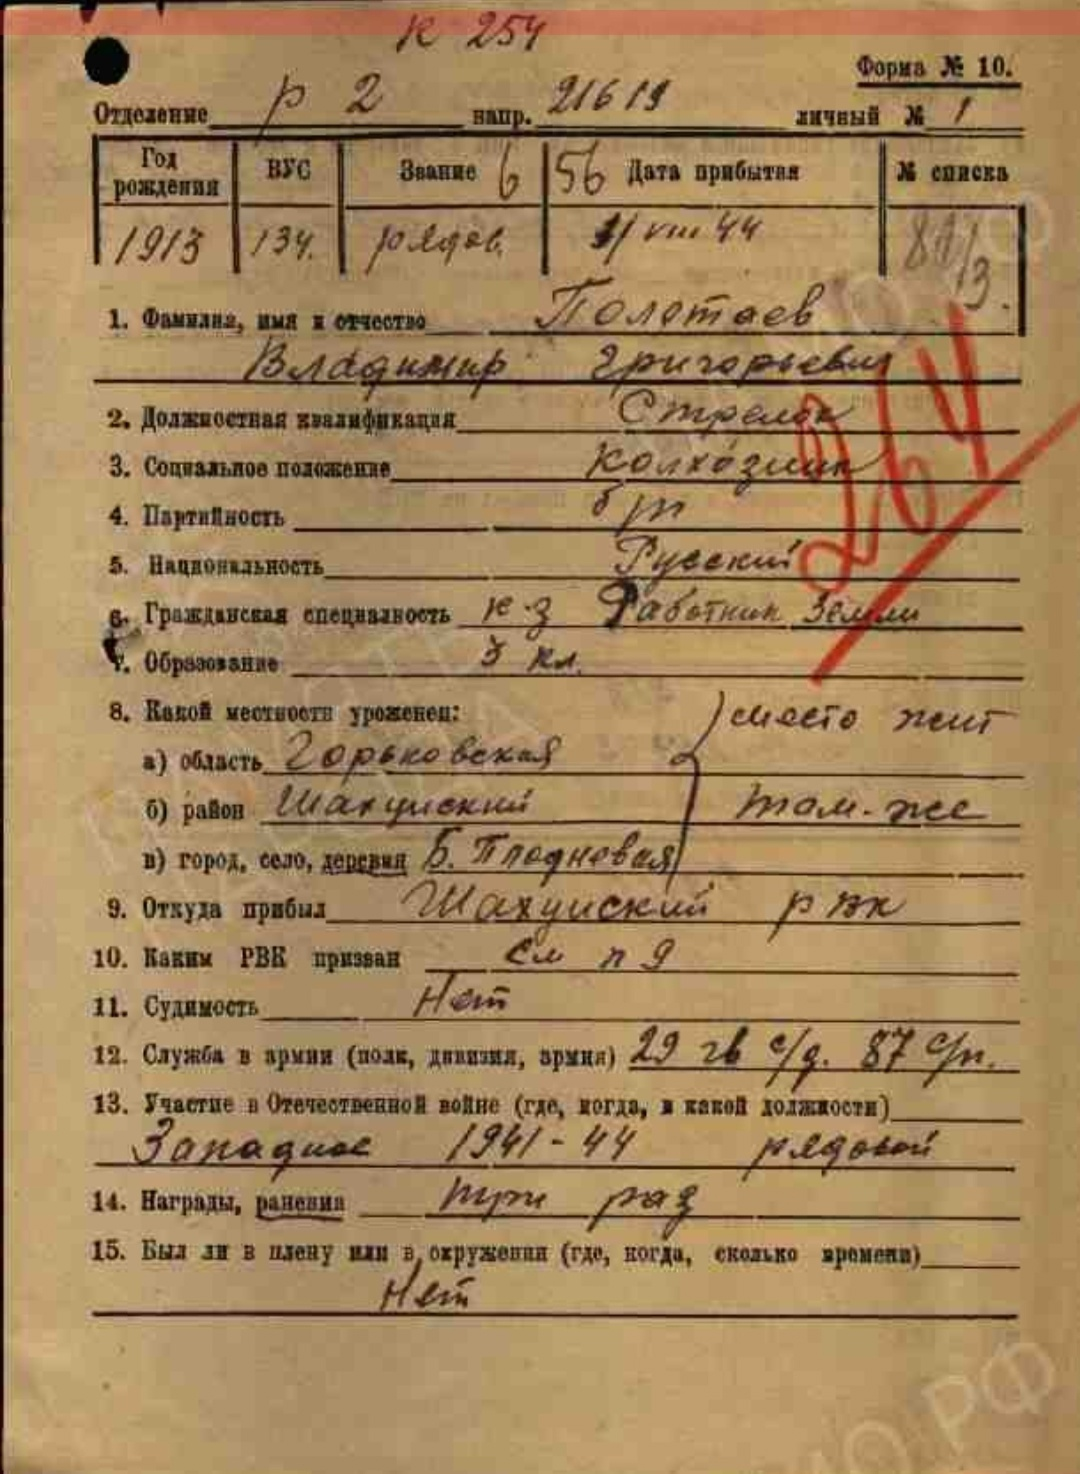 К 254
Форма № 10.
Отделение Р 2 напр. 21619 личный № 1
Год рождения ВУС Звание 6 56 Дата прибытия № списка
1913 134. рядов. 11/VIII 44
1. Фамилия, имя и отчество Полотаев
Владимир Григорьевич
2. Должностная квалификация Стрелок
3. Социальное положение Колхозник
4. Партийность б/п
5. Национальность Русский
6. Гражданская специалность к-з Работник Земли
7. Образование 3 кл.
8. Какой местности уроженец: место жит
а) область Горьковская
б) район Шахунский там-же
в) город, село, деревня Б.
9. Откуда прибыл Шахунский рвк
10. Каким РВК призван см п 9
11. Судимость Нет
12. Служба в армии (полк, дивизия, армия) 29 гв с/д. 87 с/п.
13. Участие в Отечественной войне (где, когда, в какой должности)
Западное 1941-44 рядовой
14. Награды, ранения три раз
15. Был ли в плену или в окружении (где, когда, сколько времени)
Нет
264
МО РФ